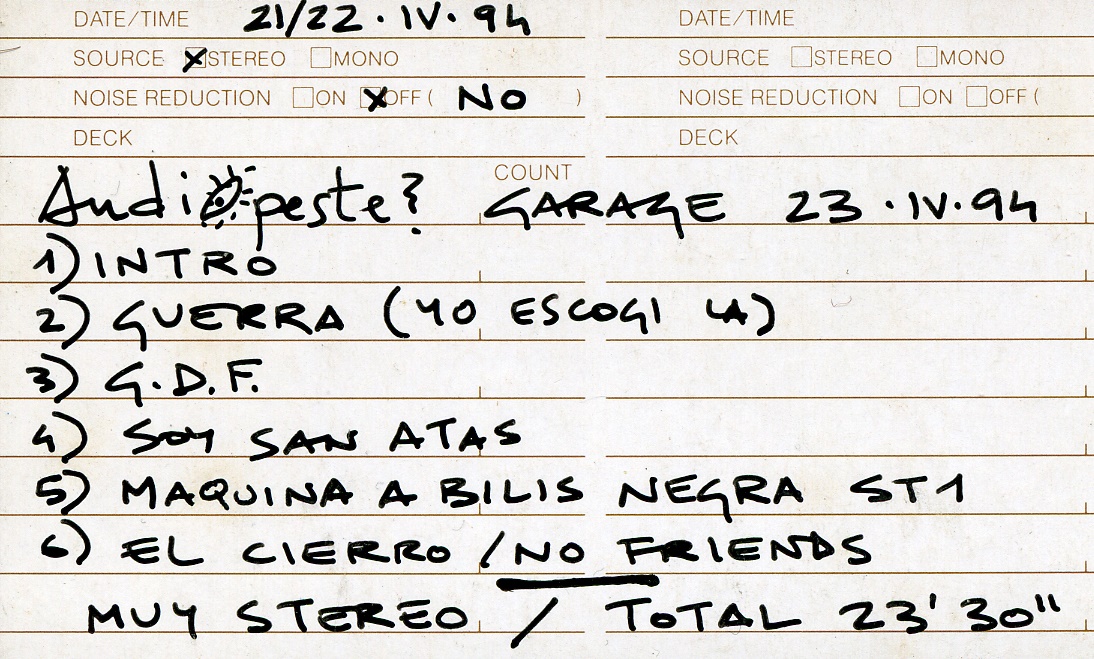 DATE/TIME 21/22 · IV · 94 DATE/TIME
SOURCE STEREO MONO SOURCE STEREO MONO
NOISE REDUCTION ON OFF ( NO ) NOISE REDUCTION ON OFF (
DECK DECK
COUNT
Audiopeste? GARAGE 23 · IV · 94
1) INTRO
2) GUERRA (YO ESCOGI LA)
3) G.D.F.
4) SOY SAN ATAS
5) MAQUINA A BILIS NEGRA ST1
6) EL CIERRO / NO FRIENDS
MUY STEREO / TOTAL 23' 30"